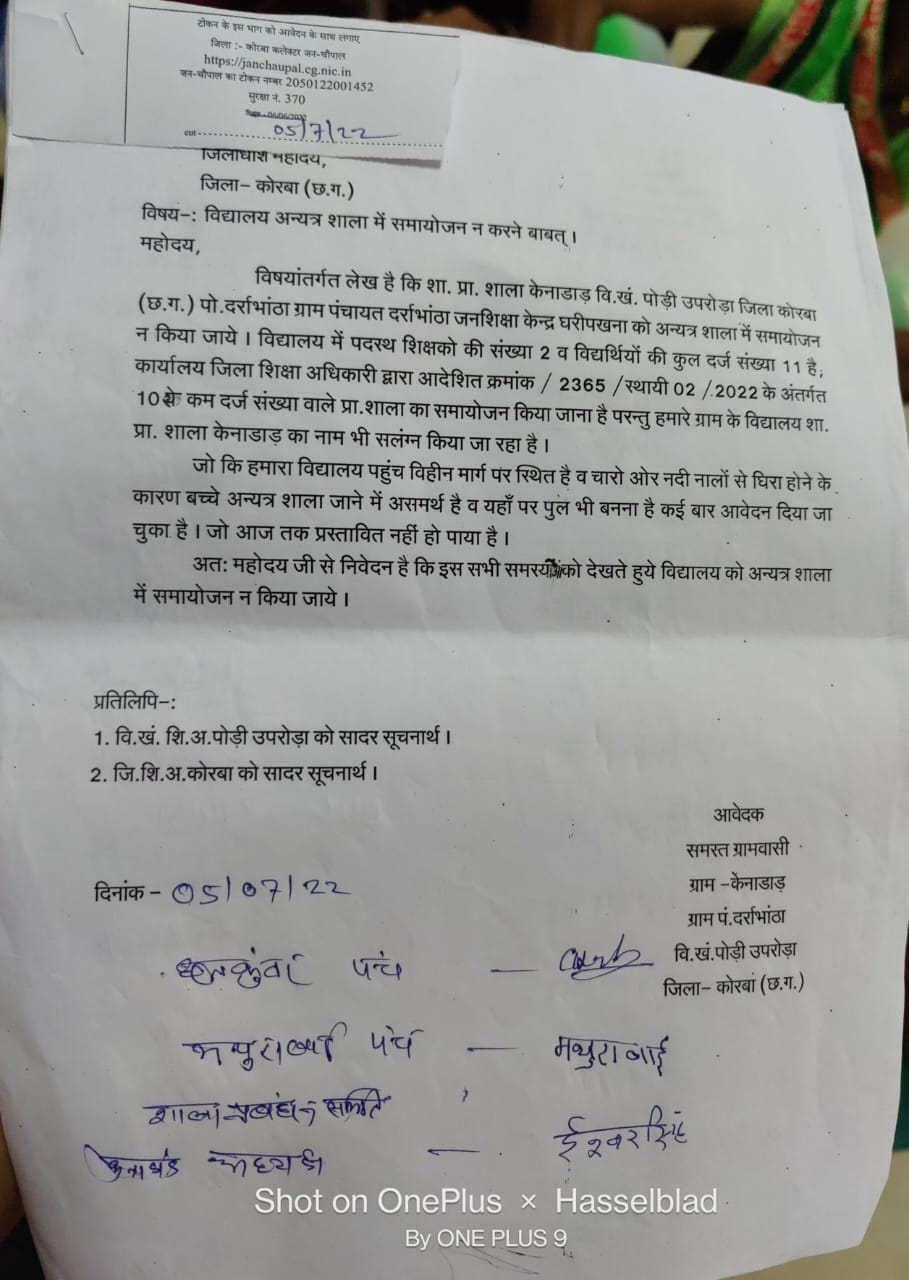 टोकन के इस भाग को आवेदन के साथ लगाए
जिला :- कोरबा कलेक्टर जन-चौपाल
https://janchaupal.cg.nic.in
जन-चौपाल का टोकन नम्बर 2050122001452
सुरक्षा नं. 370
cut 05/7/22
जिलाधीश महोदय,
जिला– कोरबा (छ.ग.)
विषय–: विद्यालय अन्यत्र शाला में समायोजन न करने बाबत्।
महोदय,
विषयांतर्गत लेख है कि शा. प्रा. शाला केनाडाड़ वि.खं. पोड़ी उपरोड़ा जिला कोरबा
(छ.ग.) पो.दर्राभांठा ग्राम पंचायत दर्राभांठा जनशिक्षा केन्द्र घरीपखना को अन्यत्र शाला में समायोजन
न किया जाये। विद्यालय में पदस्थ शिक्षको की संख्या 2 व विद्यर्थियों की कुल दर्ज संख्या 11 है,
कार्यालय जिला शिक्षा अधिकारी द्वारा आदेशित क्रमांक / 2365 /स्थायी 02 /.2022 के अंतर्गत
10 से कम दर्ज संख्या वाले प्रा.शाला का समायोजन किया जाना है परन्तु हमारे ग्राम के विद्यालय शा.
प्रा. शाला केनाडाड़ का नाम भी सलंग्न किया जा रहा है।
जो कि हमारा विद्यालय पहुंच विहीन मार्ग पर स्थित है व चारो ओर नदी नालों से घिरा होने के
कारण बच्चे अन्यत्र शाला जाने में असमर्थ है व यहाँ पर पुल भी बनना है कई बार आवेदन दिया जा
चुका है। जो आज तक प्रस्तावित नहीं हो पाया है।
अतः महोदय जी से निवेदन है कि इस सभी समस्यों को देखते हुये विद्यालय को अन्यत्र शाला
में समायोजन न किया जाये।
प्रतिलिपि–:
1. वि.खं. शि.अ.पोड़ी उपरोड़ा को सादर सूचनार्थ।
2. जि.शि.अ.कोरबा को सादर सूचनार्थ।
आवेदक
समस्त ग्रामवासी
ग्राम –केनाडाड़
ग्राम पं.दर्राभांठा
वि.खं.पोड़ी उपरोड़ा
जिला– कोरबा (छ.ग.)
दिनांक – 05/07/22
पंच –
पंच – मथुरा बाई
शाला प्रबंधन समिति
अध्यक्ष – ईश्वर सिंह
Shot on OnePlus × Hasselblad
By ONE PLUS 9